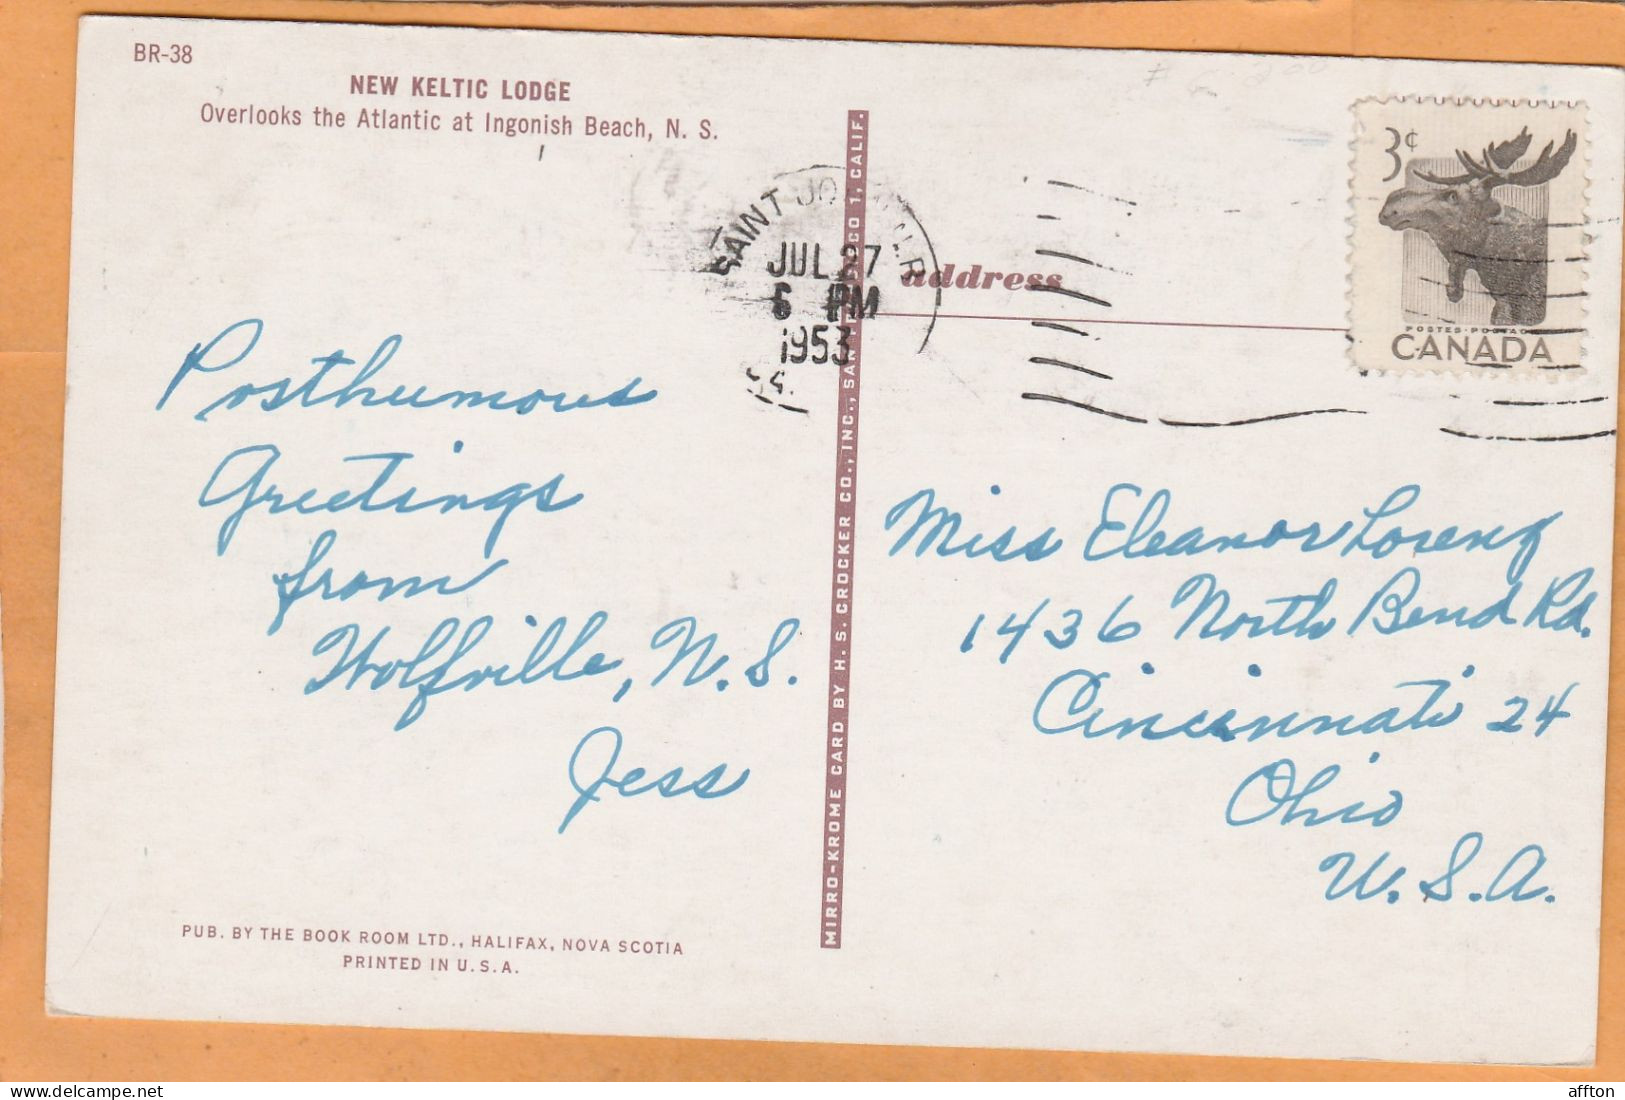 BR-38
NEW KELTIC LODGE
Overlooks the Atlantic at Ingonish Beach, N. S.
SAINT
JUL 27
6 PM
1953
3¢
POSTES-POSTAGE
CANADA
address
Posthumous
Greetings
from
Wolfville, N. S.
Jess
MIRRO-KROME CARD BY H. S. CROCKER CO., INC., SAN FRANCISCO 1, CALIF.
Miss Eleanor Lorenz
1436 North Bend Rd.
Cincinnati 24
Ohio
U. S. A.
PUB. BY THE BOOK ROOM LTD., HALIFAX, NOVA SCOTIA
PRINTED IN U. S. A.
affton